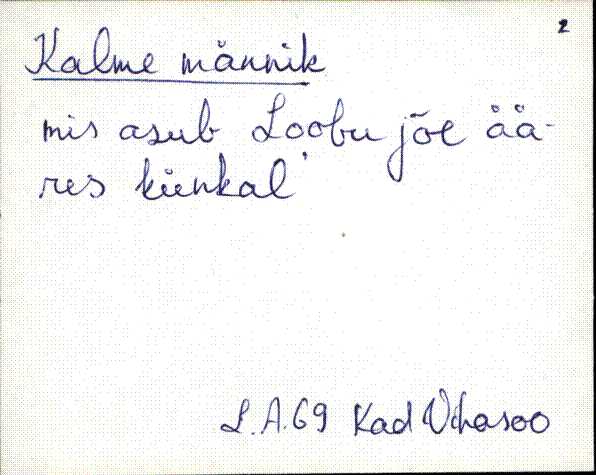 2
Kalme männik
mis asub Loobu jõe ää-
res künkal'
L.A.69 Kad Vihasoo